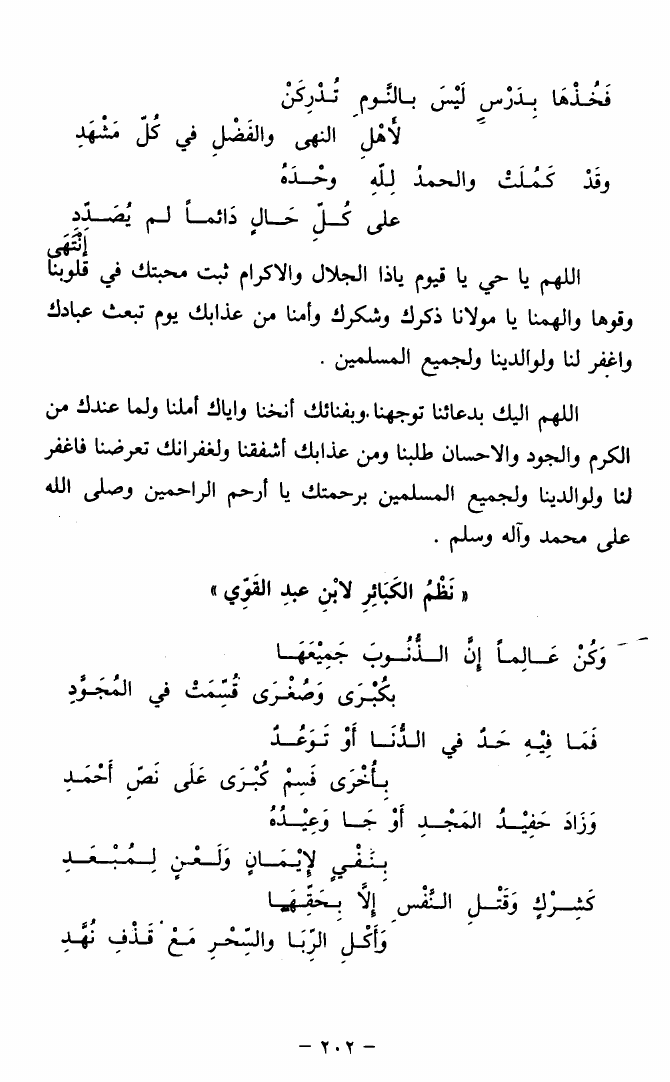 فَخُـذْهَا بِـدَرْسٍ لَيْسَ بـالنَّـومِ تُـدْرِكَنْ
لأَهْلِ النهى والفَضْلِ في كُلِّ مَشْهَدِ
وقَدْ كَمُلَتْ والحمدُ لِلَّهِ وحْـدَهُ
على كُـلِّ حَـالٍ دَائمـاً لـم يُصَـدَّدِ
إنْتَهَى
اللهم يا حي يا قيوم ياذا الجلال والاكرام ثبت محبتك في قلوبنا
وقوها والهمنا يا مولانا ذكرك وشكرك وأمنا من عذابك يوم تبعث عبادك
واغفر لنا ولوالدينا ولجميع المسلمين .
اللهم اليك بدعائنا توجهنا وبفنائك أنخنا واياك أملنا ولما عندك من
الكرم والجود والاحسان طلبنا ومن عذابك أشفقنا ولغفرانك تعرضنا فاغفر
لنا ولوالدينا ولجميع المسلمين برحمتك يا أرحم الراحمين وصلى الله
على محمد وآله وسلم .
« نَظْمُ الكَبَائِرِ لابْنِ عبدِ القَوِّي »
وَكُنْ عَـالِمـاً إِنَّ الـذُّنُـوبَ جَمِيْعَهَـا
بِكُبْـرَى وَصُغْـرَى قُسِّمَتْ في المُجَـوَّدِ
فَمَـا فِيْـهِ حَـدٌ في الـدُّنَـا أَوْ تَـوَعُّـدٌ
بِـأُخْرَى فَسِمْ كُبْـرَى عَلَى نَصِّ أَحْمَـدِ
وَزَادَ حَفِيْـدُ المَجْـدِ أَوْ جَـا وَعِيْـدُهُ
بِـنَـفْـيٍ لإِيْـمَـانٍ وَلَـعْـنٍ لِـمُـبْـعَـدِ
كَشِـرْكٍ وَقَتْـلِ النَّفْسِ إِلَّا بِـحَقِّـهَـا
وَأَكْـلِ الرِّبَـا والسِّحْـرِ مَـعْ قَـذْفِ نُهَّـدِ
– ٢٠٢ –